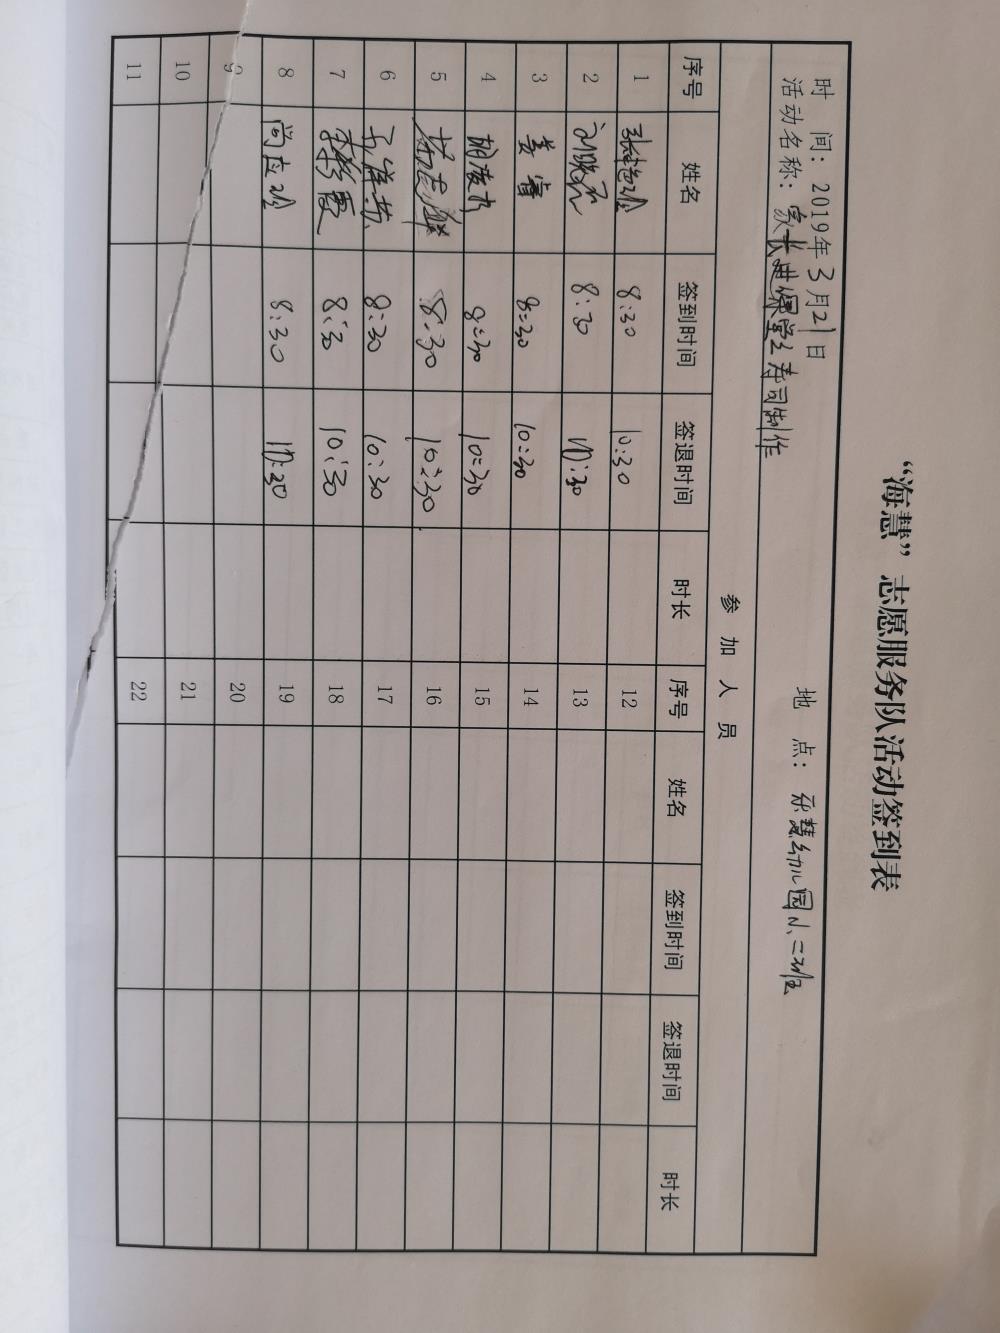 “海慧” 志愿服务队活动签到表
时 间：2019年3月21日 地 点：承慧幼儿园小二班
活动名称：家长进课堂之寿司制作
参 加 人 员
序号 姓名 签到时间 签退时间 时长 序号 姓名 签到时间 签退时间 时长
1 8:30 10:30 12
2 刘晓 8:30 10:30 13
3 姜睿 8:30 10:30 14
4 胡 8:30 10:30 15
5 8:30 10:30 16
6 8:30 10:30 17
7 霞 8:30 10:30 18
8 尚应 8:30 10:30 19
9 20
10 21
11 22